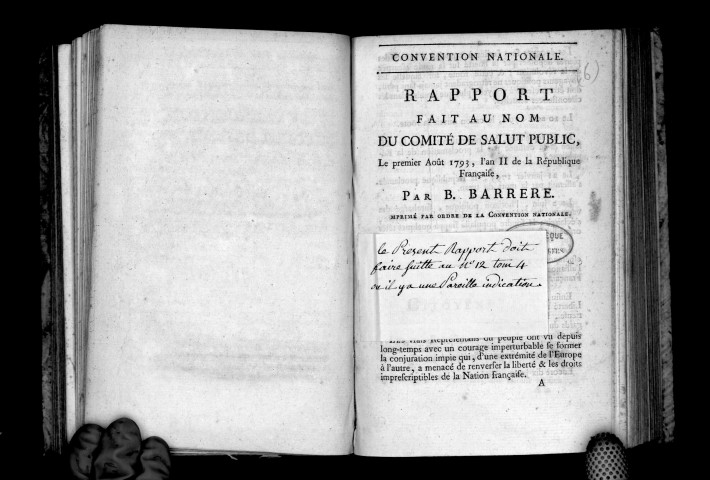 CONVENTION NATIONALE.
(6)
RAPPORT
FAIT AU NOM
DU COMITÉ DE SALUT PUBLIC,
Le premier Août 1793, l'an II de la République
Françaiſe,
PAR B. BARRERE.
MPRIMÉ PAR ORDRE DE LA CONVENTION NATIONALE.
le Present Rapport doit
faire suitte au N° 12 tom 4
ou il y a une Pareille indication.
Repréſentans du peuple ont vu depuis
long-temps avec un courage imperturbable ſe former
la conjuration impie qui, d'une extrémité de l'Europe
à l'autre, a menacé de renverſer la liberté & les droits
impreſcriptibles de la Nation françaiſe.
A